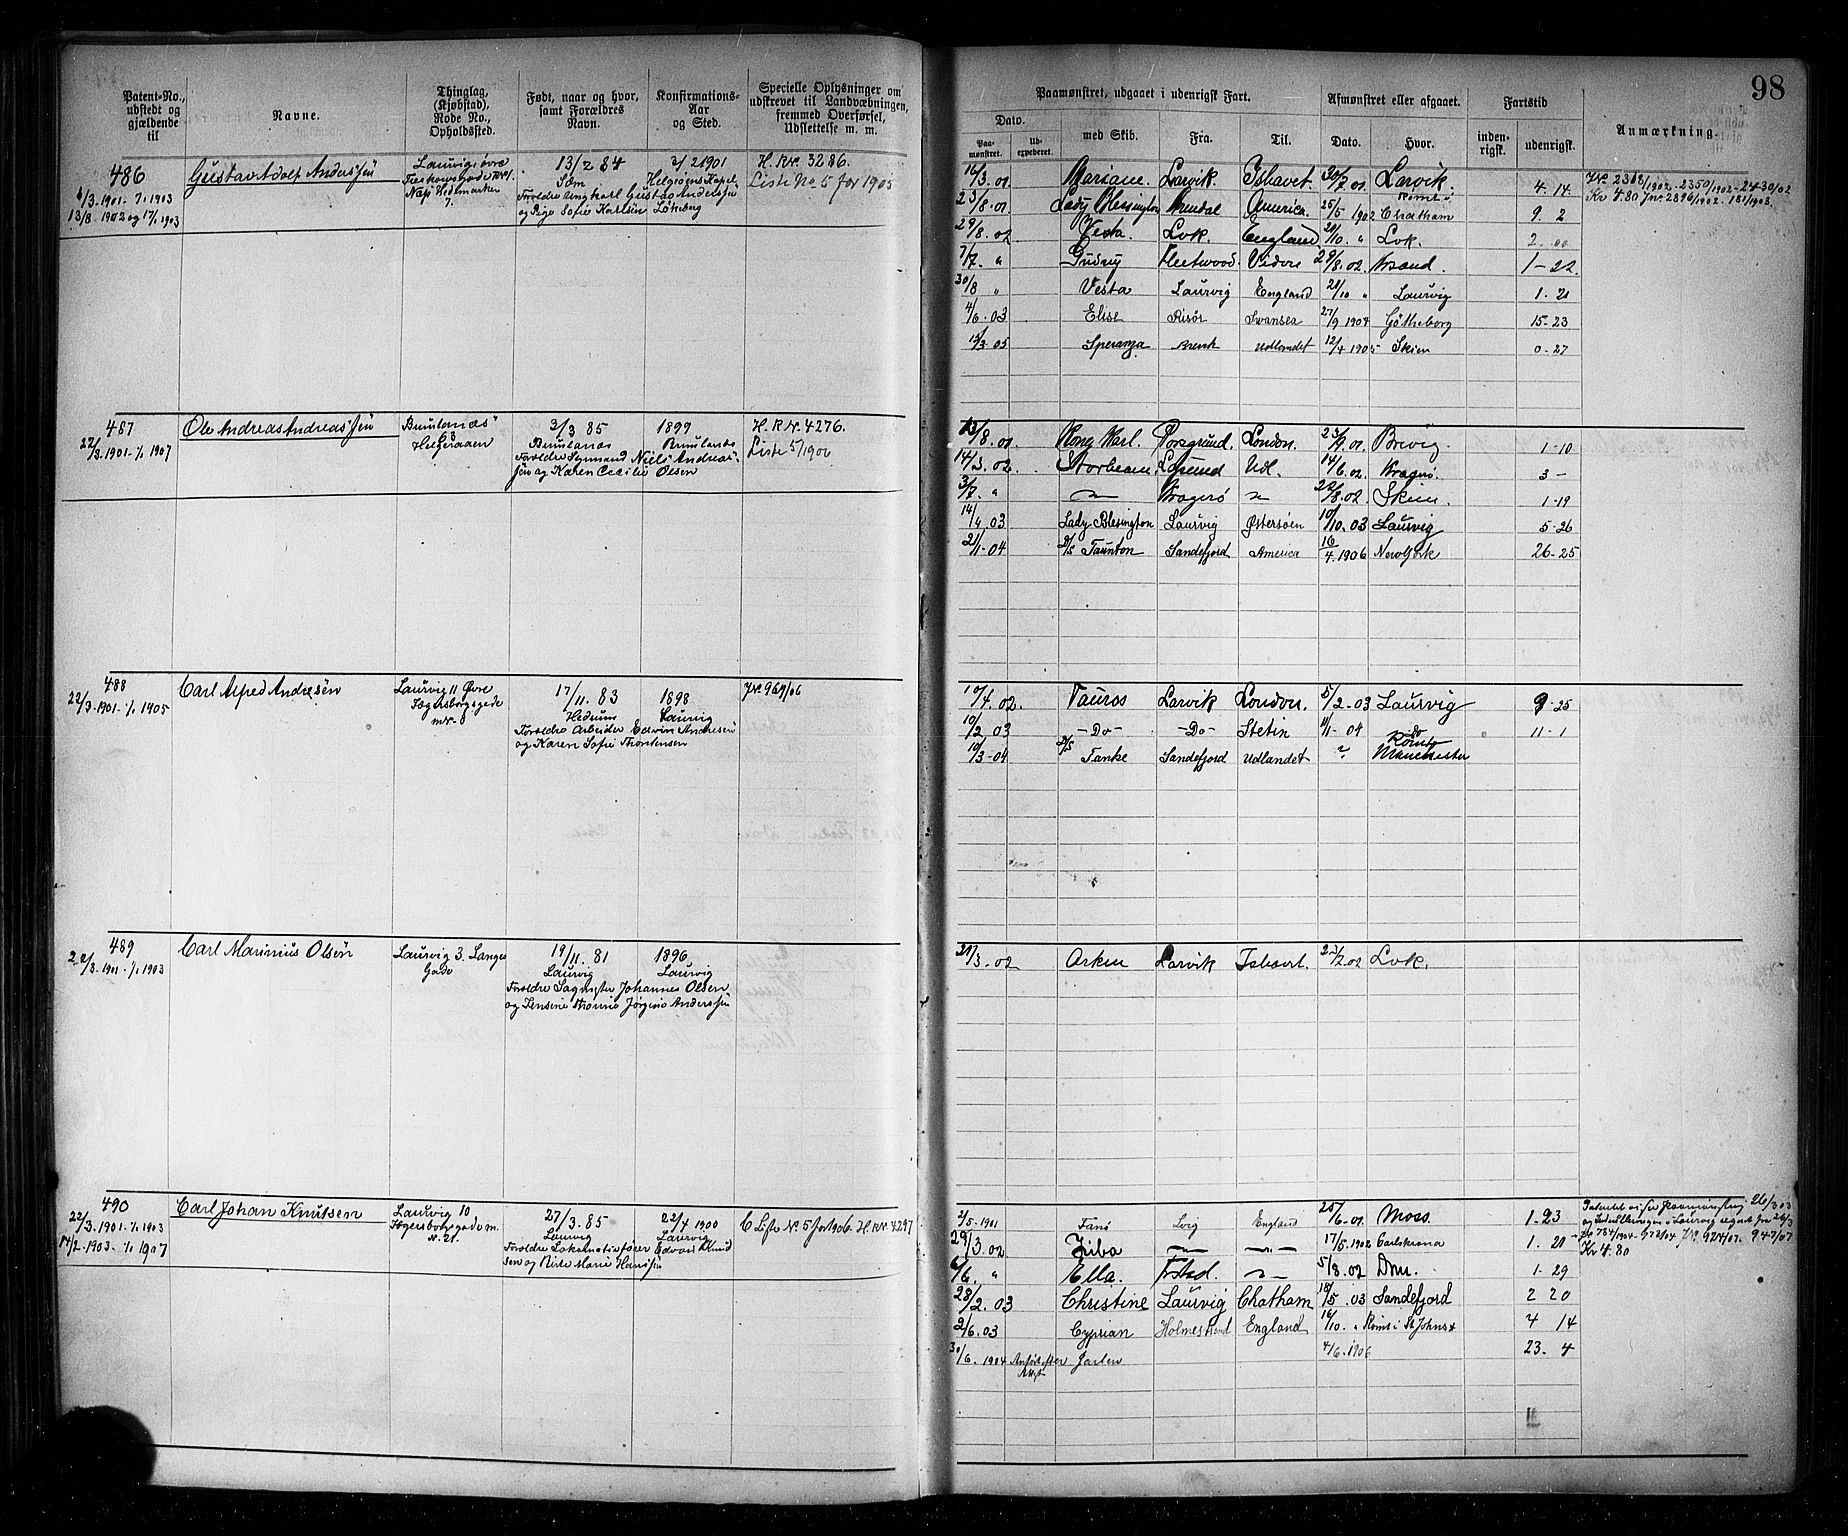 98
Patent-No., udstedt og gjældende til
Navne.
Thinglag, (Kjøbstad). Rode No., Opholdssted.
Født, naar og hvor, samt Forældres Navn.
Konfirmations-Aar og Sted.
Specielle Oplysninger om udskrevet til Landværbningen, fremmed Overførsel, Udslettelse m. m.
Paamønstret, udgaaet i udenrigsk Fart.
Afmønstret eller afgaaet.
Fartstid
Anmærkning.
Dato.
Paa-mønstret.
Ud-expederet.
med Skib.
Fra.
Til.
Dato.
Hvor.
inden-rigsk.
udenrigsk.
486
6/3.1901-1/1.1903
13/8.1902 og 17/1.1903
Gustav Adolf Anderssen
Laurvig, øvre
7.
13/2 84
Sem
Forældre Ungkarl Gustav Anderssen
og Pige Sofie Karlsen Løkeberg
3/2 1901
Helgeroens Kapel
H. R Nr. 3286.
Liste No 5 for 1905
16/3.01. Mariane. Larvik. Ishavet. 30/7 01. Larvik. 4. 14
23/8.01. Lady Blessington Arendal America. 25/5 1902 Rømt i Chatham 9. 2
29/8.02 Vesta. Lvk. England 20/10. " Lvk. 2. 00
7/7. " Gudruy Fleetwood. 29/8.02. Krsand. 1-22.
30/8 " Vesta Laurvig England 28/10 " Laurvig 1. 21
4/6.03 Elise Risör Swansea 27/9 1904 Götheborg 15-23
15/3.05 Speranza Brevik Udlandet 12/4 1905 Skien 0-27
Kr 4.80
487
22/3.1901-1/1.1907
Ole Andreas Andreassen
Brunlanæs
63
Helgeraaen
3/3 85
Brunlanæs
Forældre Sømand Niels Andreas-
sen og Karen Cecilie Olsen
1899
Brunlanæs
H. R Nr. 4276.
Liste 5/1906
13/8.01. Kong Karl. Porsgrund. London. 23/9.01. Brevig. 1-10
14/3.02. Storbeam. Udl. 14/6.02. Kragerö. 3-
3/7. " Kragerö 22/8.02. Skien. 1-19
14/4.03 Lady Blesington Laurvig Østersøen 10/10.03 Laurvig 5-26
21/1-04 D/S Taunton Sandefjord America 16/4.1906 New York 26-25
488
22/3.1901-1/1.1905
Carl Alfred Andresen
Laurvig 11 Øvre
Jægersborgsgade
nr. 8
17/11. 83
Hedrum
Forældre Arbeider Edvin Andresen
og Karen Sofie Thorstensen
1898
Laurvig
J.Nr. 969/06
10/4.02. Tauros Larvik London. 5/2-03 Laurvig 9-25
10/2 03 -Do- -Do- Stetin 11/1-04 -do 11-1
10/3-04 D/S Tanke Sandefjord Udlandet ? Rømt Manchester
489
22/3.1901-1/1.1903
Carl Marinius Olsen
Laurvig 3. Langes
Gade
19/11. 81
Laurvig
Forældre Sagmester Johannes Olsen
og Jensine Jørgine Anderssen
1896
Laurvig
20/3.02 Arken Larvik Ishavet. Lvk.
490
22/3.1901-1/1.1903
14/2.1903-1/1 1907
Carl Johan Knutsen
Laurvig 10
Jægersborgsgade
N. 21.
27/3.85
Laurvig
Forældre Lokomotivfører Edvart Knud
sen og Kirste Marie Hanssen
22/4 1900
Laurvig
C Liste No. 5 for 1906. H. R Nr 4297
2/5.1901 Fanö Lvig England 25/6.01. Moss. 1.23
29/3.02 Ziba 17/5.1902 Carlskrona 1. 20
6/6. " Ella. Fstad. 5/8.02 Drm. 1. 29
28/2.03 Christine Laurvig Chatham 18/5.03 Sandefjord 2 20
2/6.03 Cyprian Holmestrand England 16/10. " Rømt i St Johns 4 14
30/6.1904 Anført efter Jarlen 4/6.1906 23. 4
26/3 03
Kr 4.80